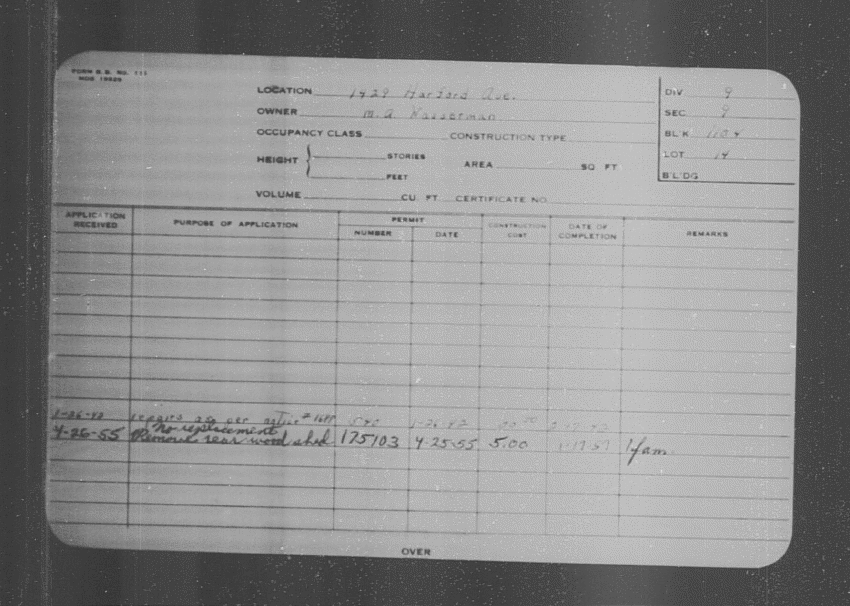 FORM B.B. NO. 111
MDS 19929
LOCATION 1429 Harford Ave.
OWNER M.A. Wasserman
OCCUPANCY CLASS CONSTRUCTION TYPE
HEIGHT STORIES FEET AREA SQ FT
VOLUME CU FT CERTIFICATE NO.
DIV. 9
SEC. 9
BL'K 1104
LOT 14
B'L'DG
APPLICATION RECEIVED PURPOSE OF APPLICATION PERMIT NUMBER DATE CONSTRUCTION COST DATE OF COMPLETION REMARKS
1-26-42 repairs as per notice 1-26-42
No replacement
4-26-55 Remove rear wood shed 175103 4-25-55 5.00 1-17-57 1 fam.
OVER